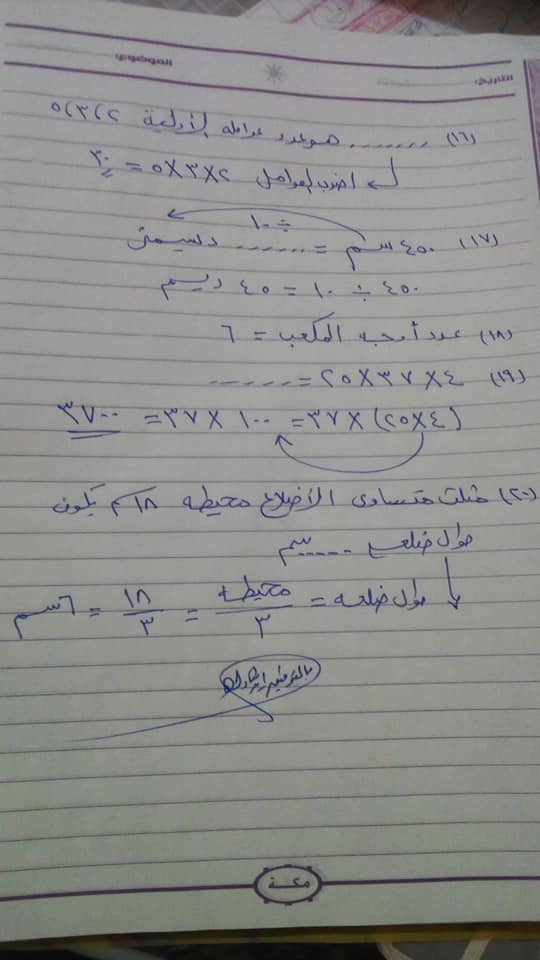 التاريخ: الموضوع:
(١٦) ....... هو عدد عوامله الأولية ٢،٣،٥
اضرب العوامل ٢×٣×٥ = ٣٠
١٠ ÷
(١٧) ٤٥٠ سم = ...... ديسيمتر
٤٥٠ ÷ ١٠ = ٤٥ ديسم
(١٨) عدد أوجه المكعب = ٦
(١٩) ٤ × ٣٧ × ٢٥ = ......
(٤×٢٥) × ٣٧ = ١٠٠ × ٣٧ = ٣٧٠٠
(٢٠) مثلث متساوى الأضلاع محيطه ١٨ سم يكون
طول ضلعه ...... سم
طول ضلعه = محيطه / ٣ = ١٨ / ٣ = ٦ سم
مكة